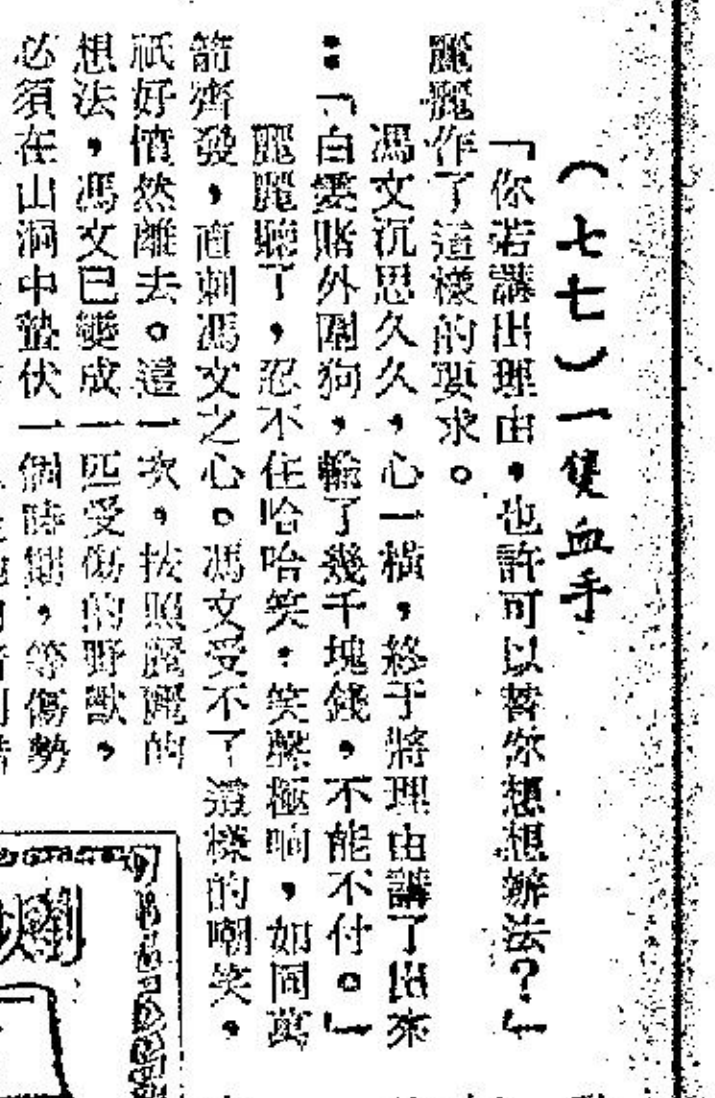 （七七）一隻血手
「你若講出理由，也許可以替你想想辦法？」
麗麗作了這樣的要求。
馮文沉思久久，心一橫，終于將理由講了出來
：「白雲賭外圍狗，輸了幾千塊錢，不能不付。」
麗麗聽了，忍不住哈哈笑；笑聲極响，如同萬
箭齊發，直刺馮文之心。馮文受不了這樣的嘲笑，
祇好憤然離去。這一次，按照麗麗的
想法，馮文已變成一匹受傷的野獸，
必須在山洞中蟄伏一個時期，等傷勢
劉